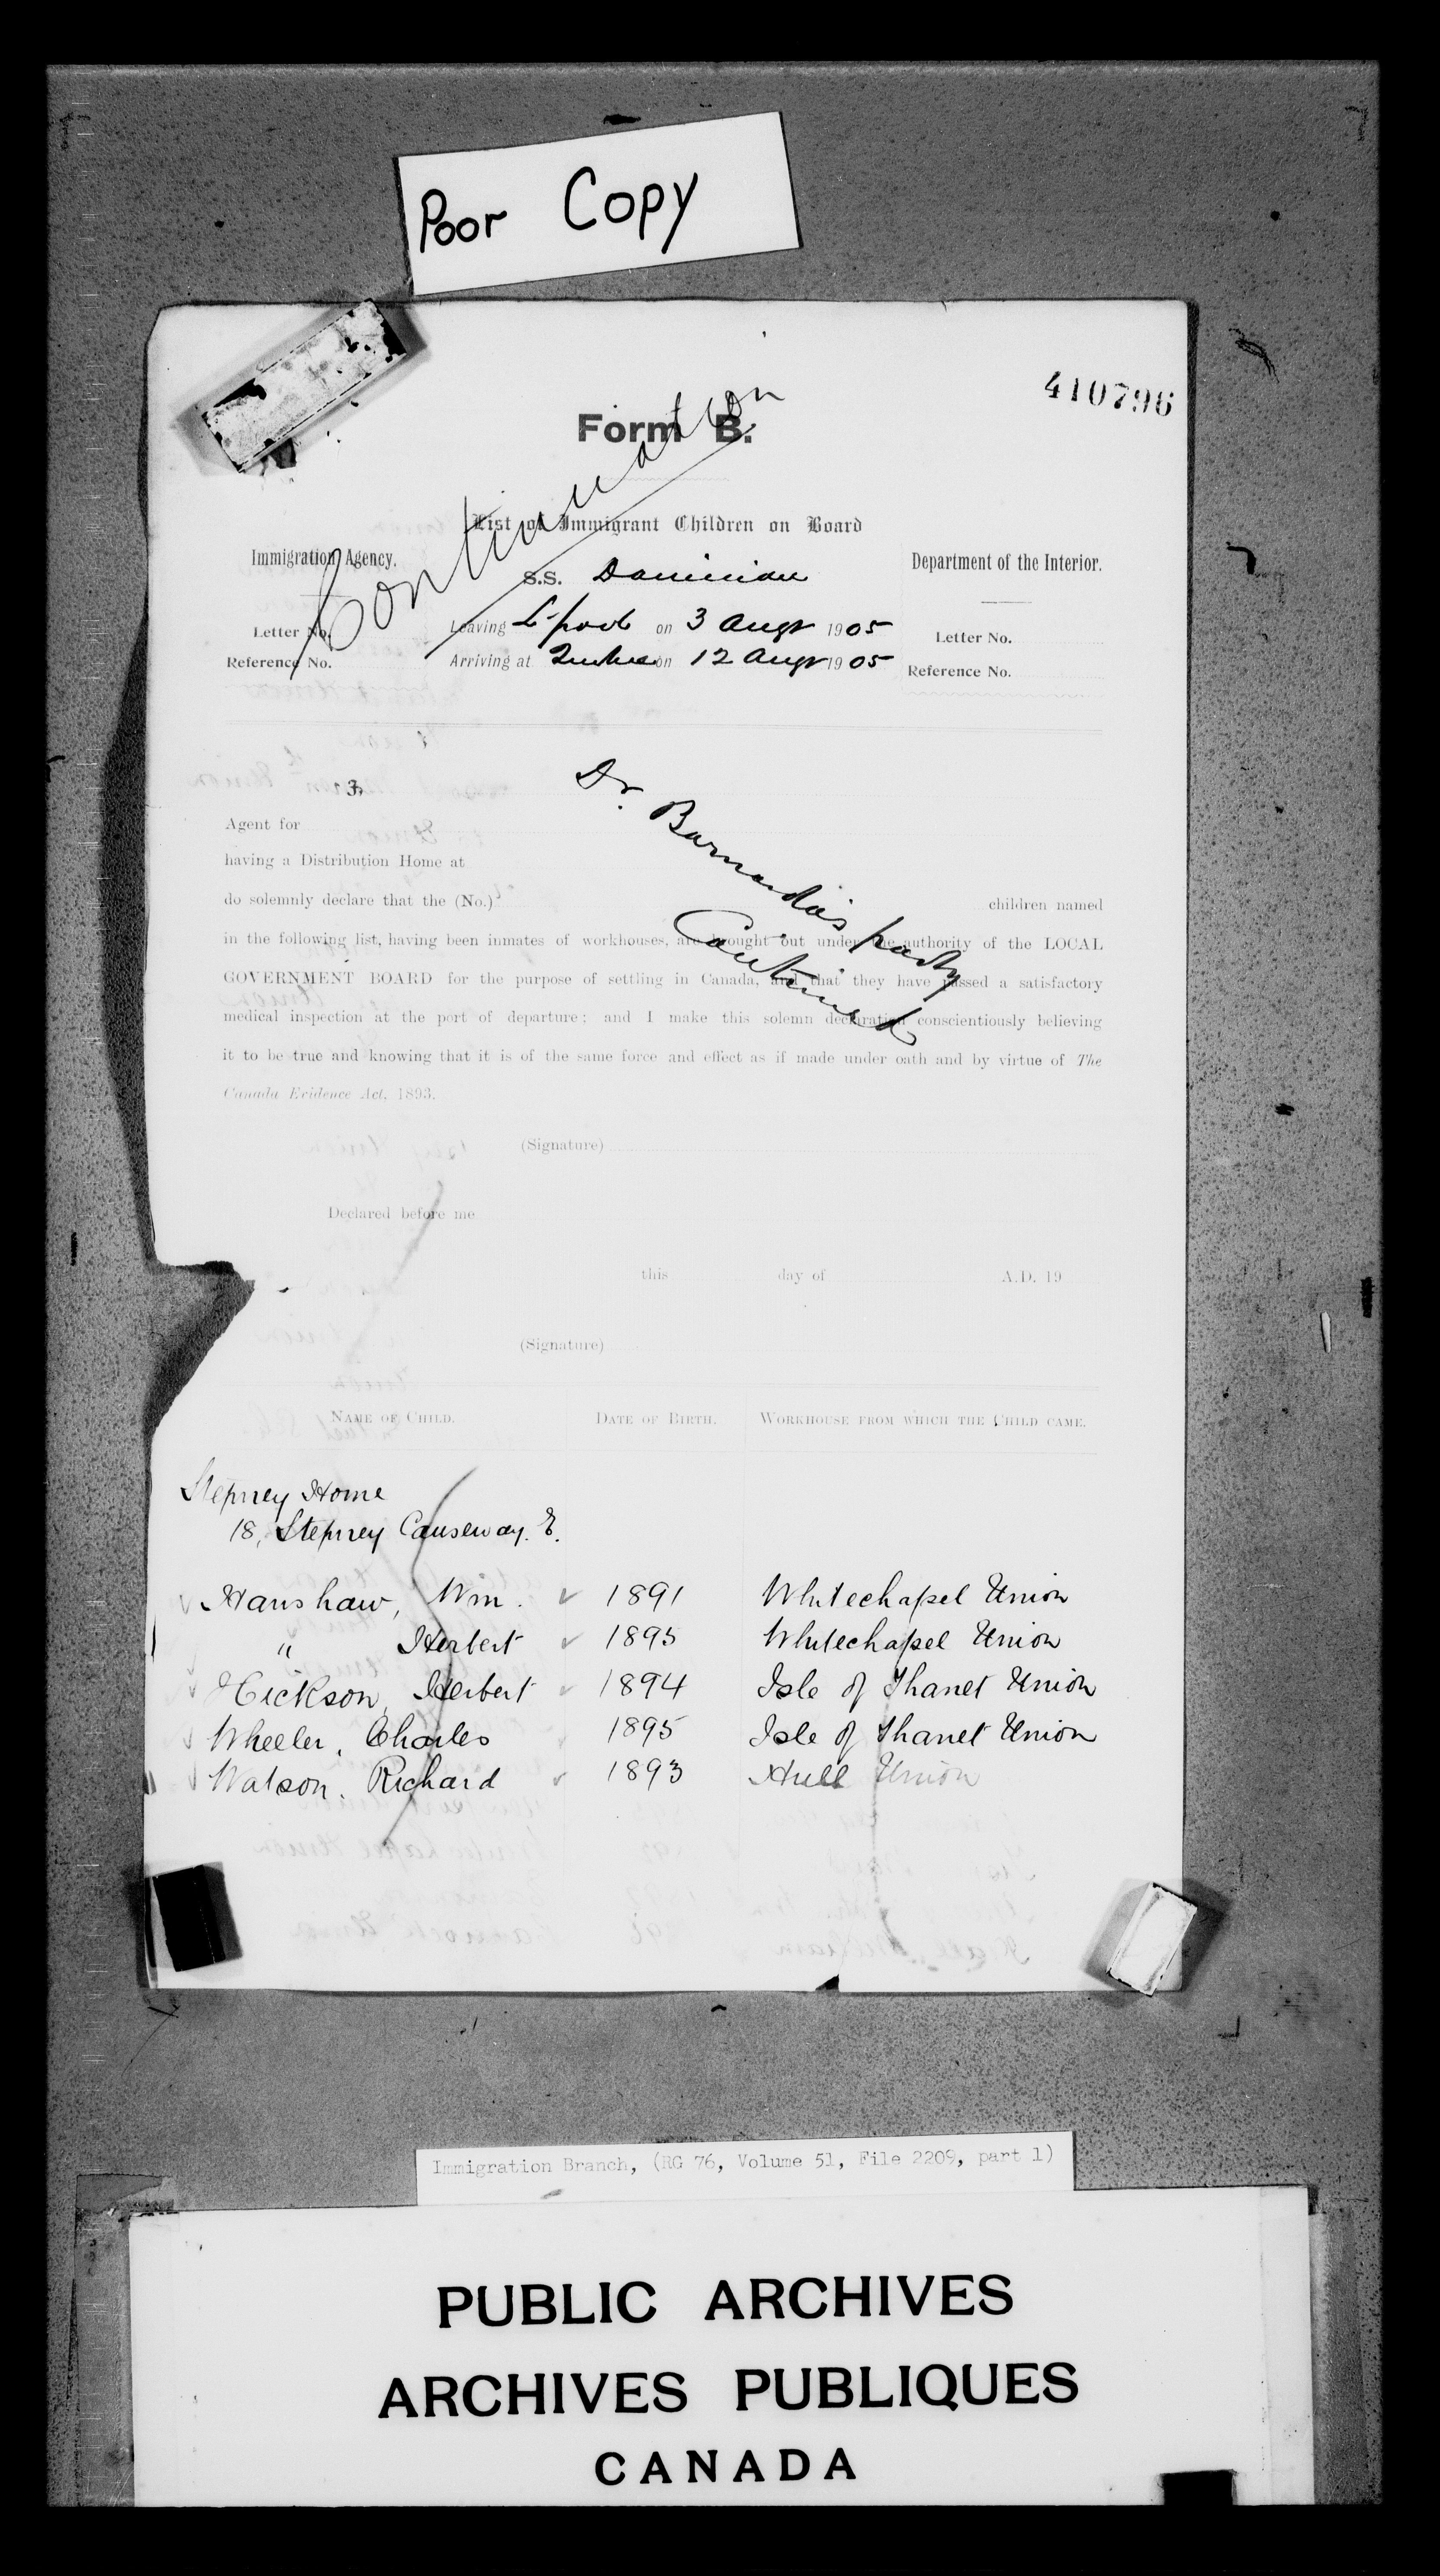 Poor Copy
410796
Form B.
Continuation
List of Immigrant Children on Board
Immigration Agency.
Department of the Interior.
S.S. Dominion
Letter No.
Leaving L'pool on 3 Augt 1905
Letter No.
Reference No.
Arriving at Quebec on 12 Augt 1905
Reference No.
Dr. Barnardo's party
Continued
Agent for
having a Distribution Home at
do solemnly declare that the (No.) children named
in the following list, having been inmates of workhouses, are brought out under the authority of the LOCAL
GOVERNMENT BOARD for the purpose of settling in Canada, and that they have passed a satisfactory
medical inspection at the port of departure; and I make this solemn declaration conscientiously believing
it to be true and knowing that it is of the same force and effect as if made under oath and by virtue of The
Canada Evidence Act, 1893.
(Signature)
Declared before me
this day of A.D. 19
(Signature)
NAME OF CHILD. DATE OF BIRTH. WORKHOUSE FROM WHICH THE CHILD CAME.
Stepney Home
18, Stepney Causeway. E.
Hanshaw, Wm. 1891 Whitechapel Union
" Herbert 1895 Whitechapel Union
Hickson, Herbert 1894 Isle of Thanet Union
Wheeler, Charles 1895 Isle of Thanet Union
Watson. Richard 1893 Hull Union
Immigration Branch, (RG 76, Volume 51, File 2209, part 1)
PUBLIC ARCHIVES
ARCHIVES PUBLIQUES
CANADA